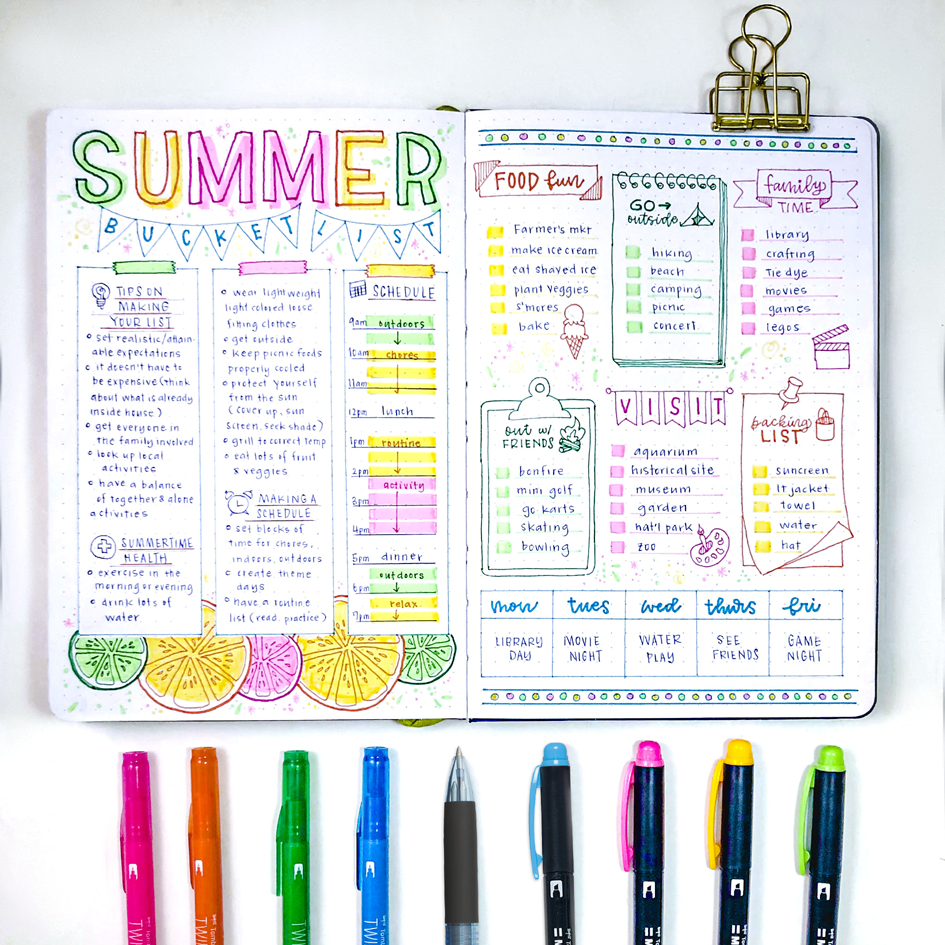 SUMMER
BUCKET LIST
TIPS ON
MAKING
YOUR LIST
set realistic/attain-
able expectations
it doesn't have to
be expensive (think
about what is already
inside house)
get everyone in
the family involved
look up local
activities
have a balance
of together & alone
activities
SUMMERTIME
HEALTH
exercise in the
morning or evening
drink lots of
water
wear lightweight
light colored loose
fitting clothes
get outside
keep picnic foods
properly cooled
protect yourself
from the sun
(cover up, sun
screen, seek shade)
grill to correct temp
eat lots of fruit
& veggies
MAKING A
SCHEDULE
set blocks of
time for chores,
indoors, outdoors
create theme
days
have a routine
list (read, practice)
SCHEDULE
9am outdoors
10am chores
11am
12pm lunch
1pm routine
2pm
activity
3pm
4pm
5pm dinner
outdoors
6pm
relax
7pm
FOOD fun
Farmer's mkt
make ice cream
eat shaved ice
plant veggies
s'mores
bake
GO →
outside
hiking
beach
camping
picnic
concert
family
TIME
library
crafting
Tie dye
movies
games
legos
out w/
FRIENDS
bonfire
mini golf
go karts
skating
bowling
VISIT
aquarium
historical site
museum
garden
nat'l park
zoo
packing
LIST
suncreen
lt jacket
towel
water
hat
mon tues wed thurs fri
LIBRARY
DAY
MOVIE
NIGHT
WATER
PLAY
SEE
FRIENDS
GAME
NIGHT